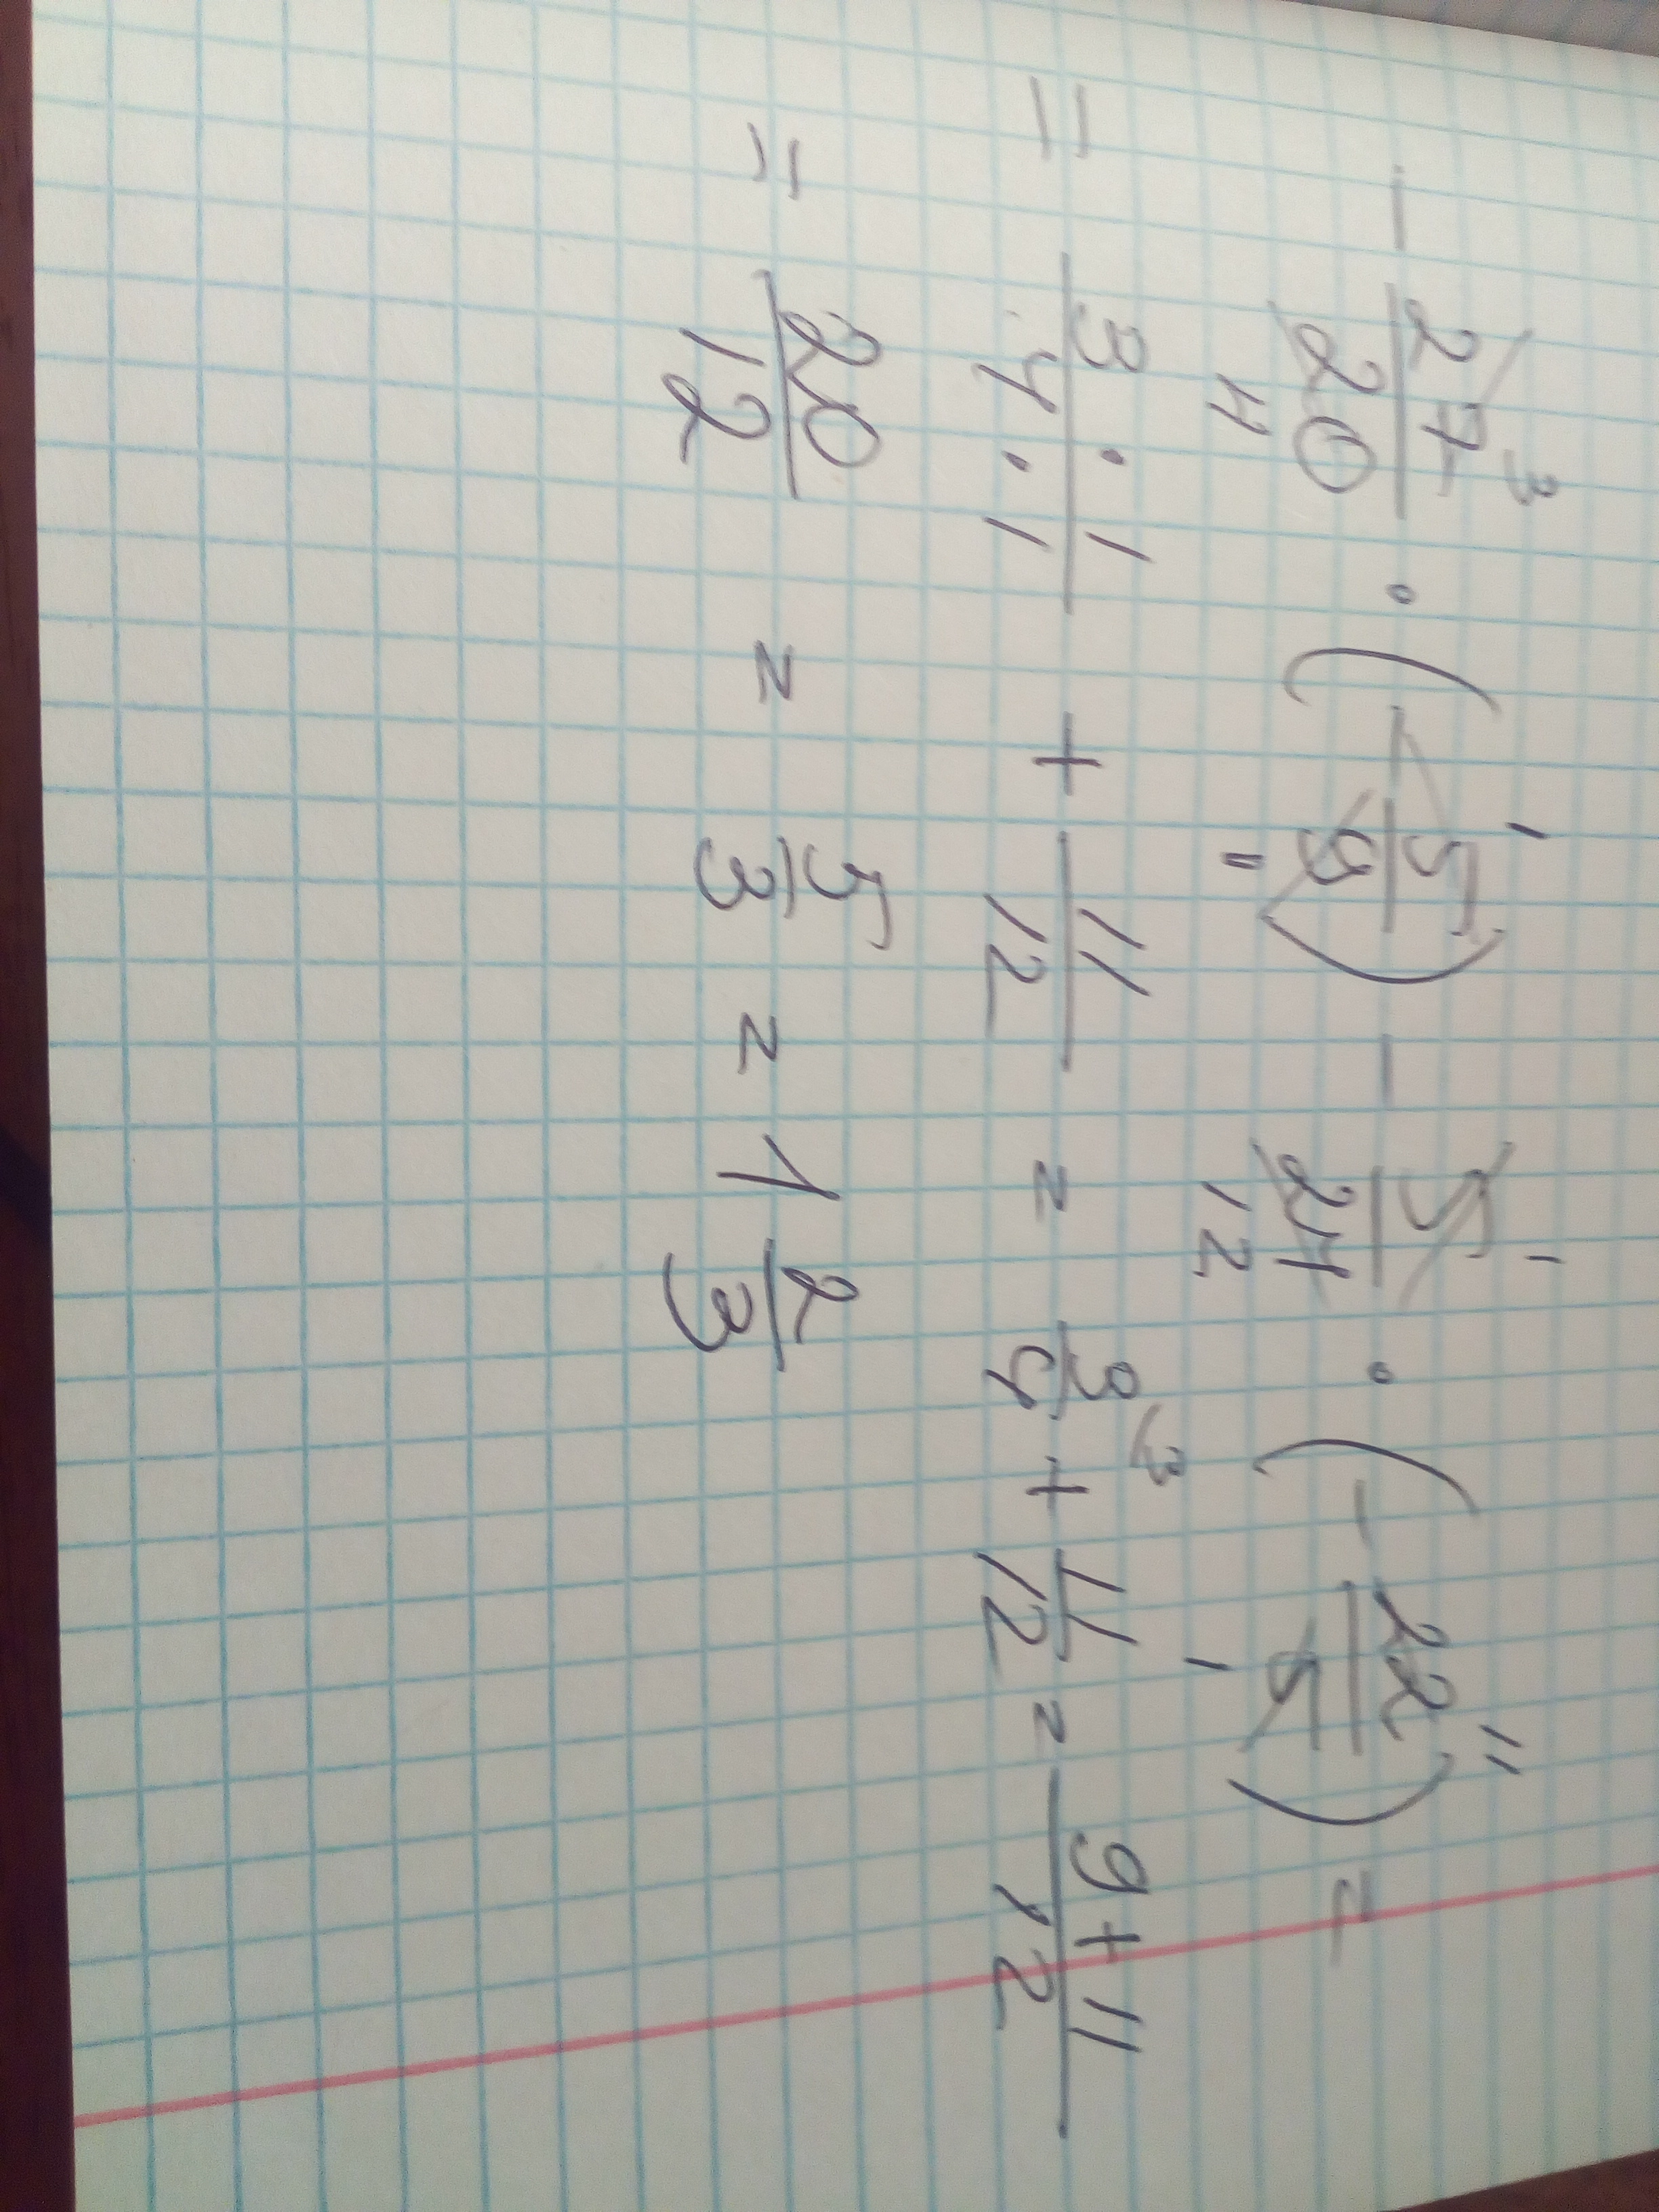 - 27/20 · (- 5/9) - 5/24 · (- 22/5) =
= 3·1/4·1 + 11/12 = 3/4 + 11/12 = 9+11/12
= 20/12 = 5/3 = 1 2/3